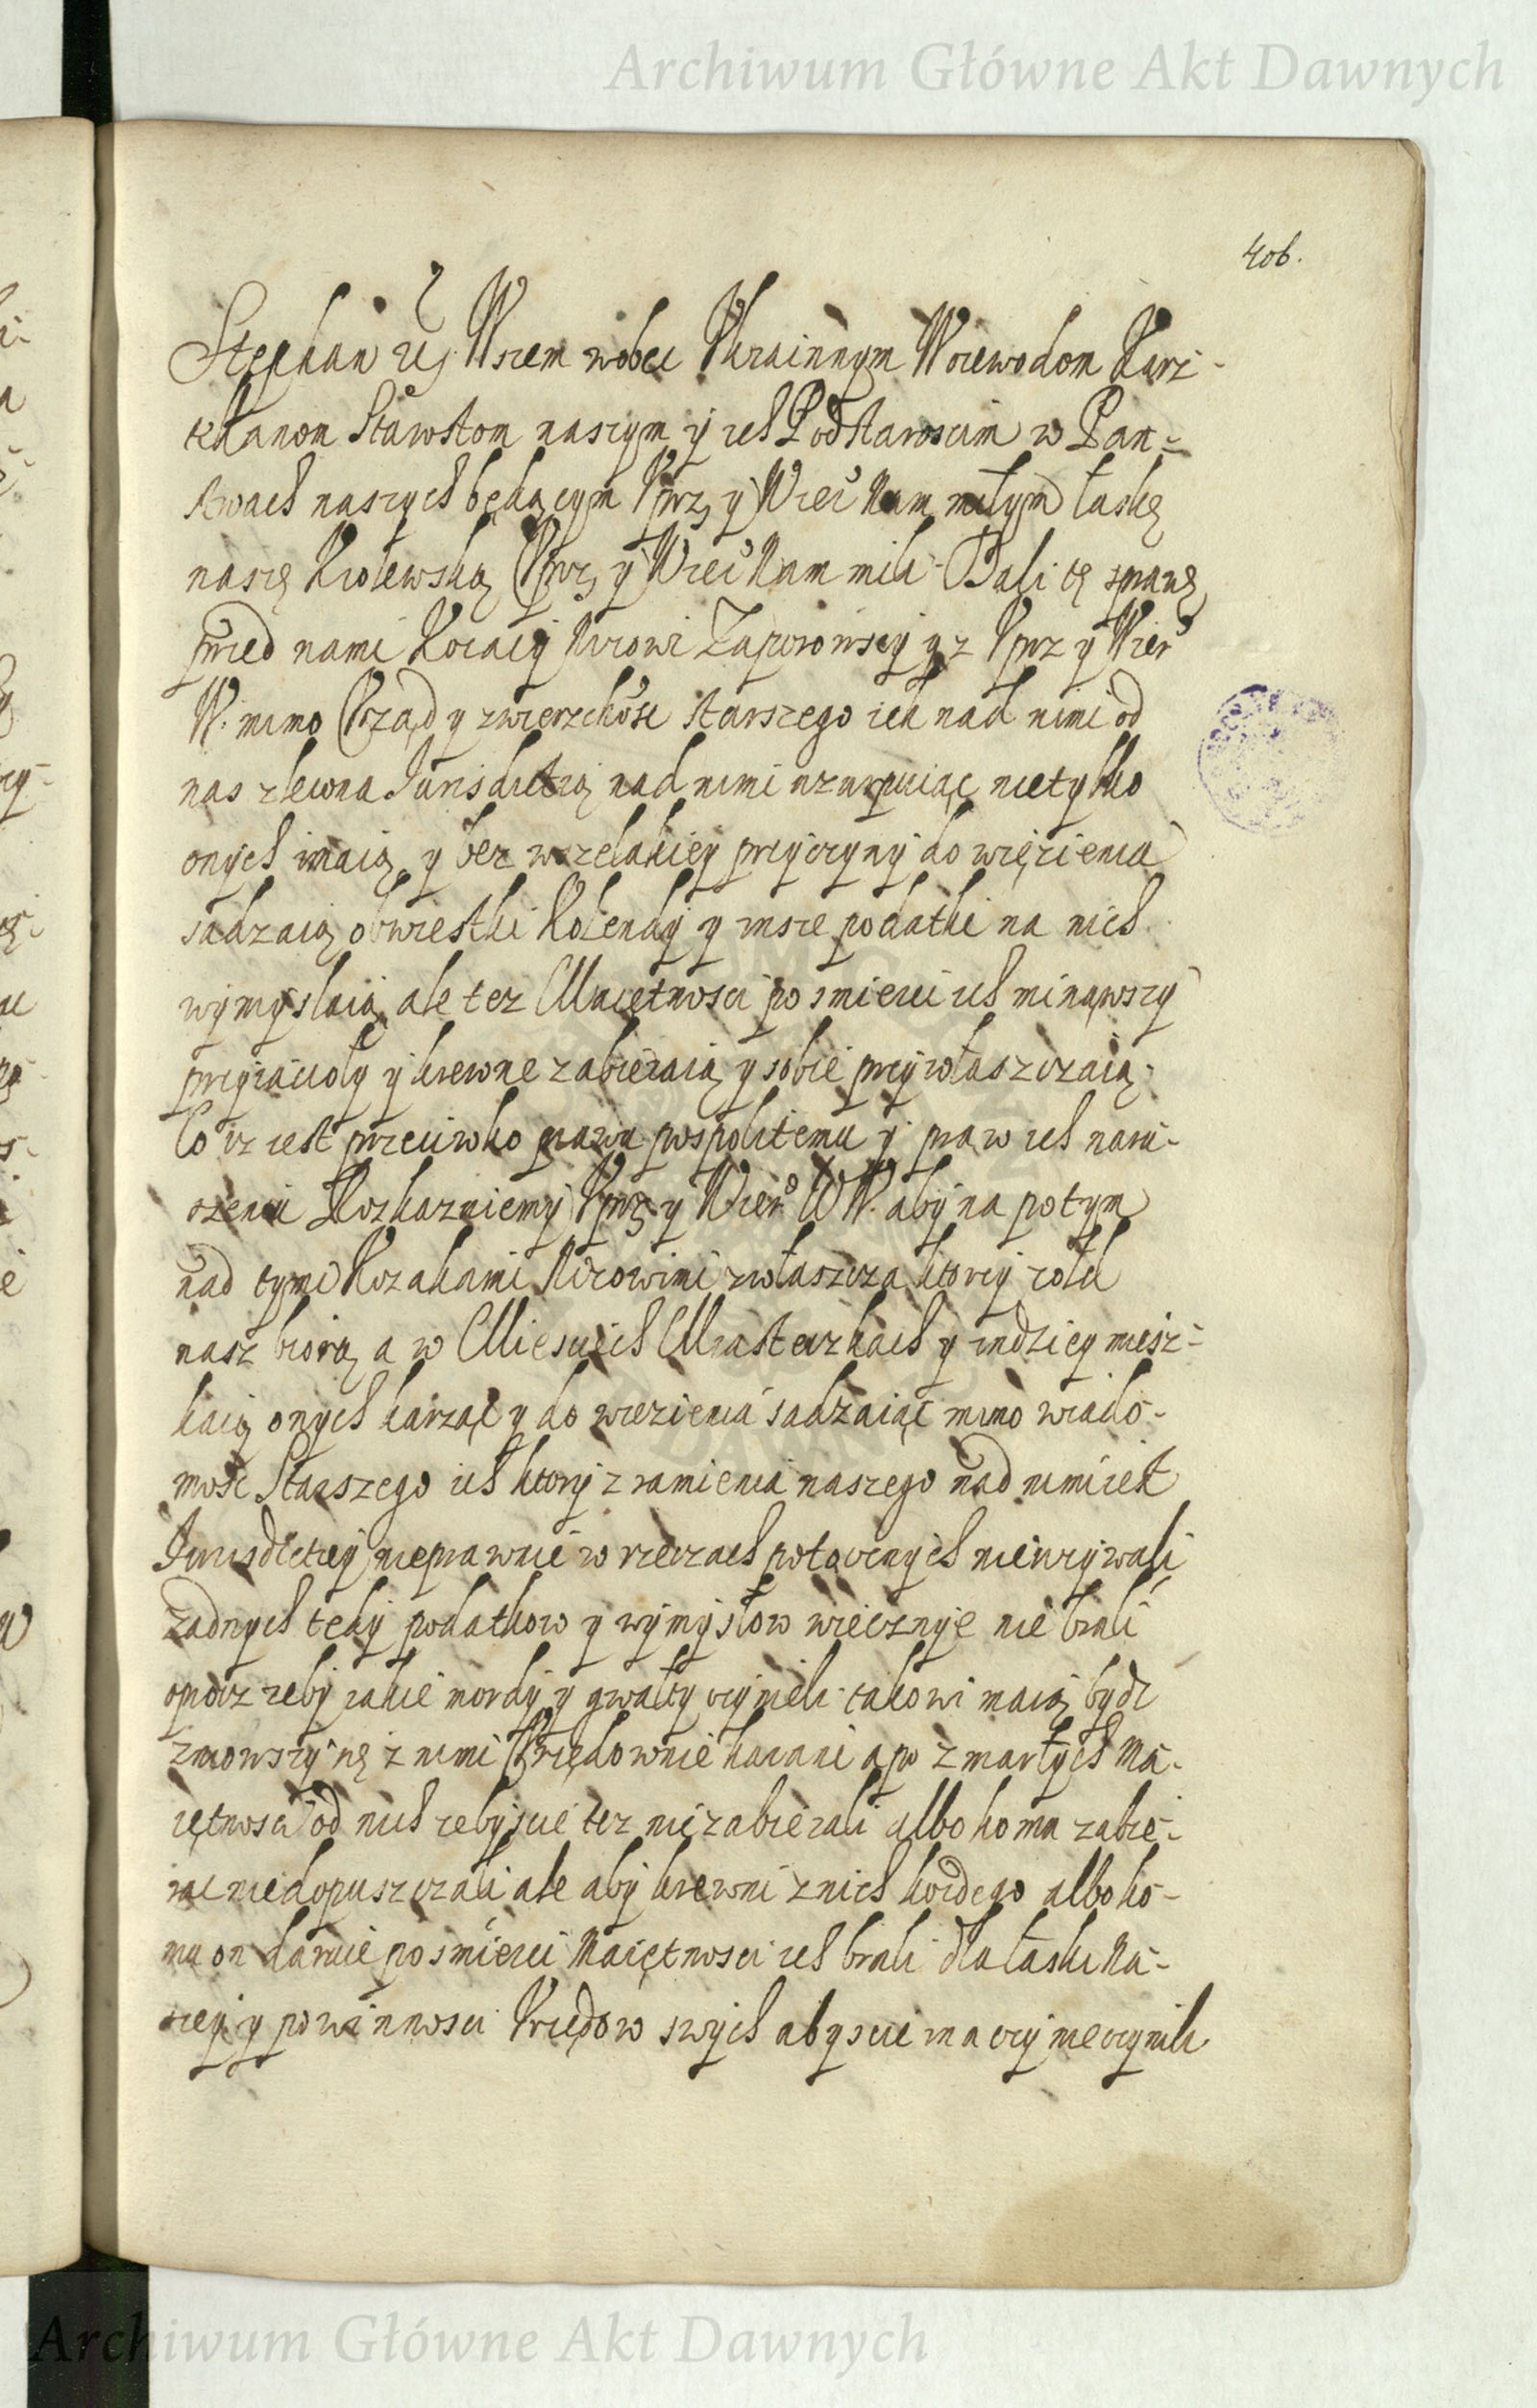 Archiwum Główne Akt Dawnych
406.
Stephan etc. Wszem wobec Ukrainnym Woiewodom Kasz-
tellanom Starostom naszym y ich Podstaroscim w Pan-
stwach naszych będącym Uprz. y Wier. Nam miłym łaskę
naszę Krolewską Uprz. y Wier. Nam mili. Dali tę sprawę
przed nami Kozacy Nizowi Zaporowscy yz Uprz. y Wier.
W. mimo Urząd y zwierzchość starszego ich nad nimi od
nas zleconą Jurisdictią nad nimi uzurpuiąc nietylko
onych imaią y bez wszelakiey przyczyny do więzienia
sadzaią obwiestki Kolendy y insze podatki na nich
wymyslaią ale tez Maiętnosci po smierci ich minąwszy
przyiacioły y krewne zabieraią y sobie przywłaszczaią.
Co iz iest przeciwko prawu pospolitemu y praw ich naru-
szeniu Rozkazuiemy Uprz. y Wier. WW. aby na potym
nad tymi Kozakami Nizowimi zwłaszcza ktorzy zołd
nasz biorą a w Miesciech Miasteczkach y indziey miesz-
kaią onych karząc y do wiezienia sadzaiąc mimo wiado-
mość Starszego ich ktory z ramienia naszego nad nimi iest
Jurisdictiey nieprawnie w rzeczach potocznych nieuzywali
zadnych tedy podatkow y wymysłow wiecznye nie brali
oprocz zeby iakie mordy y gwałty czynieli takowi maią bydz
zniowszy się z nimi Urzędownie karani a po zmarłych Ma-
iętnosci od nich zebyscie tez nie zabierali albo komu zabie-
rac niedopuszczali ale aby krewni z nich kozdego albo ko-
mu on daruie po smierci Maiętnosci ich brali dla łaski Na-
szey y powinnosci Urzędow swych abyscie inaczy nie czynili
Archiwum Główne Akt Dawnych